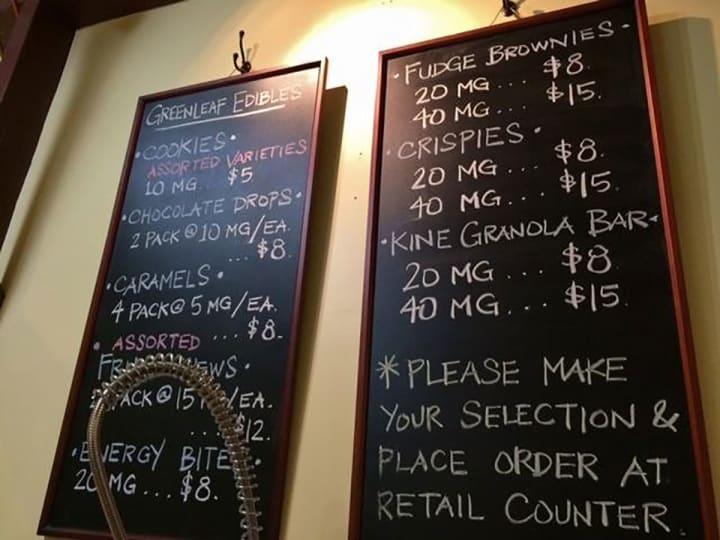 GREENLEAF EDIBLES
• COOKIES •
ASSORTED VARIETIES
10 MG... $5
• CHOCOLATE DROPS •
2 PACK @ 10 MG/EA.
... $8.
• CARAMELS •
4 PACK @ 5 MG/EA.
... $8.
• ASSORTED
PACK @ 15 /EA.
... $12.
• ENERGY BITES •
20 MG... $8.
• FUDGE BROWNIES •
20 MG... $8.
40 MG... $15.
• CRISPIES •
20 MG... $8.
40 MG... $15.
• KINE GRANOLA BAR •
20 MG... $8.
40 MG... $15.
* PLEASE MAKE
YOUR SELECTION &
PLACE ORDER AT
RETAIL COUNTER.